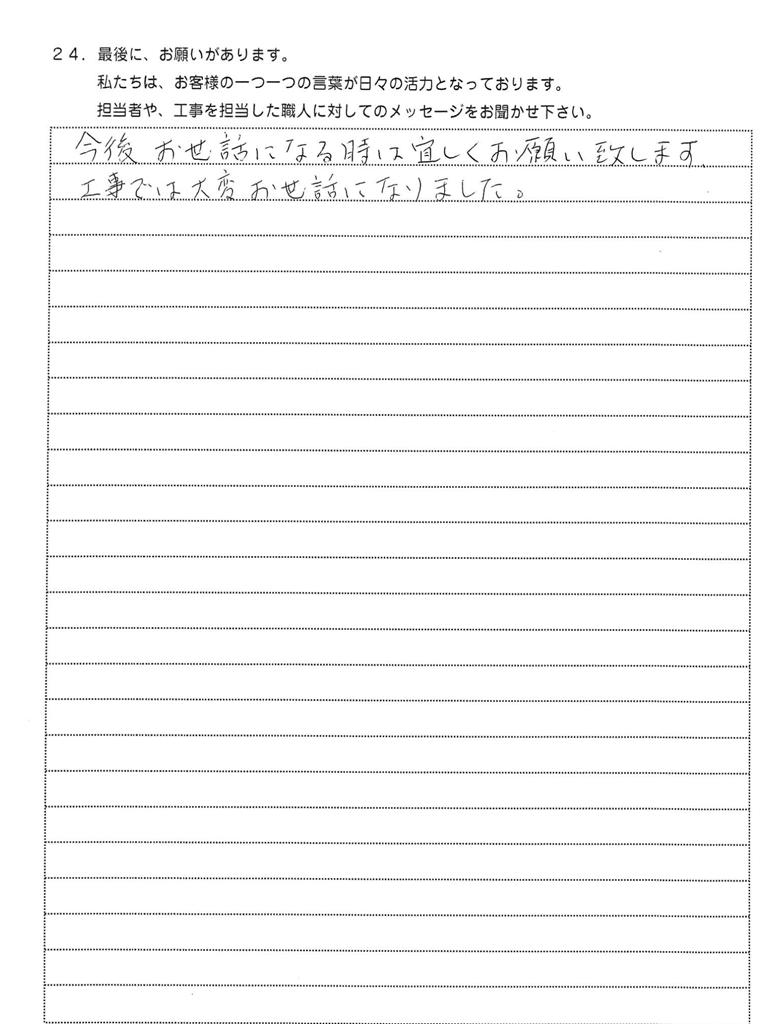 24．最後に、お願いがあります。
私たちは、お客様の一つ一つの言葉が日々の活力となっております。
担当者や、工事を担当した職人に対してのメッセージをお聞かせ下さい。
今後 お世話になる時は宜しくお願い致します.
工事では大変お世話になりました。